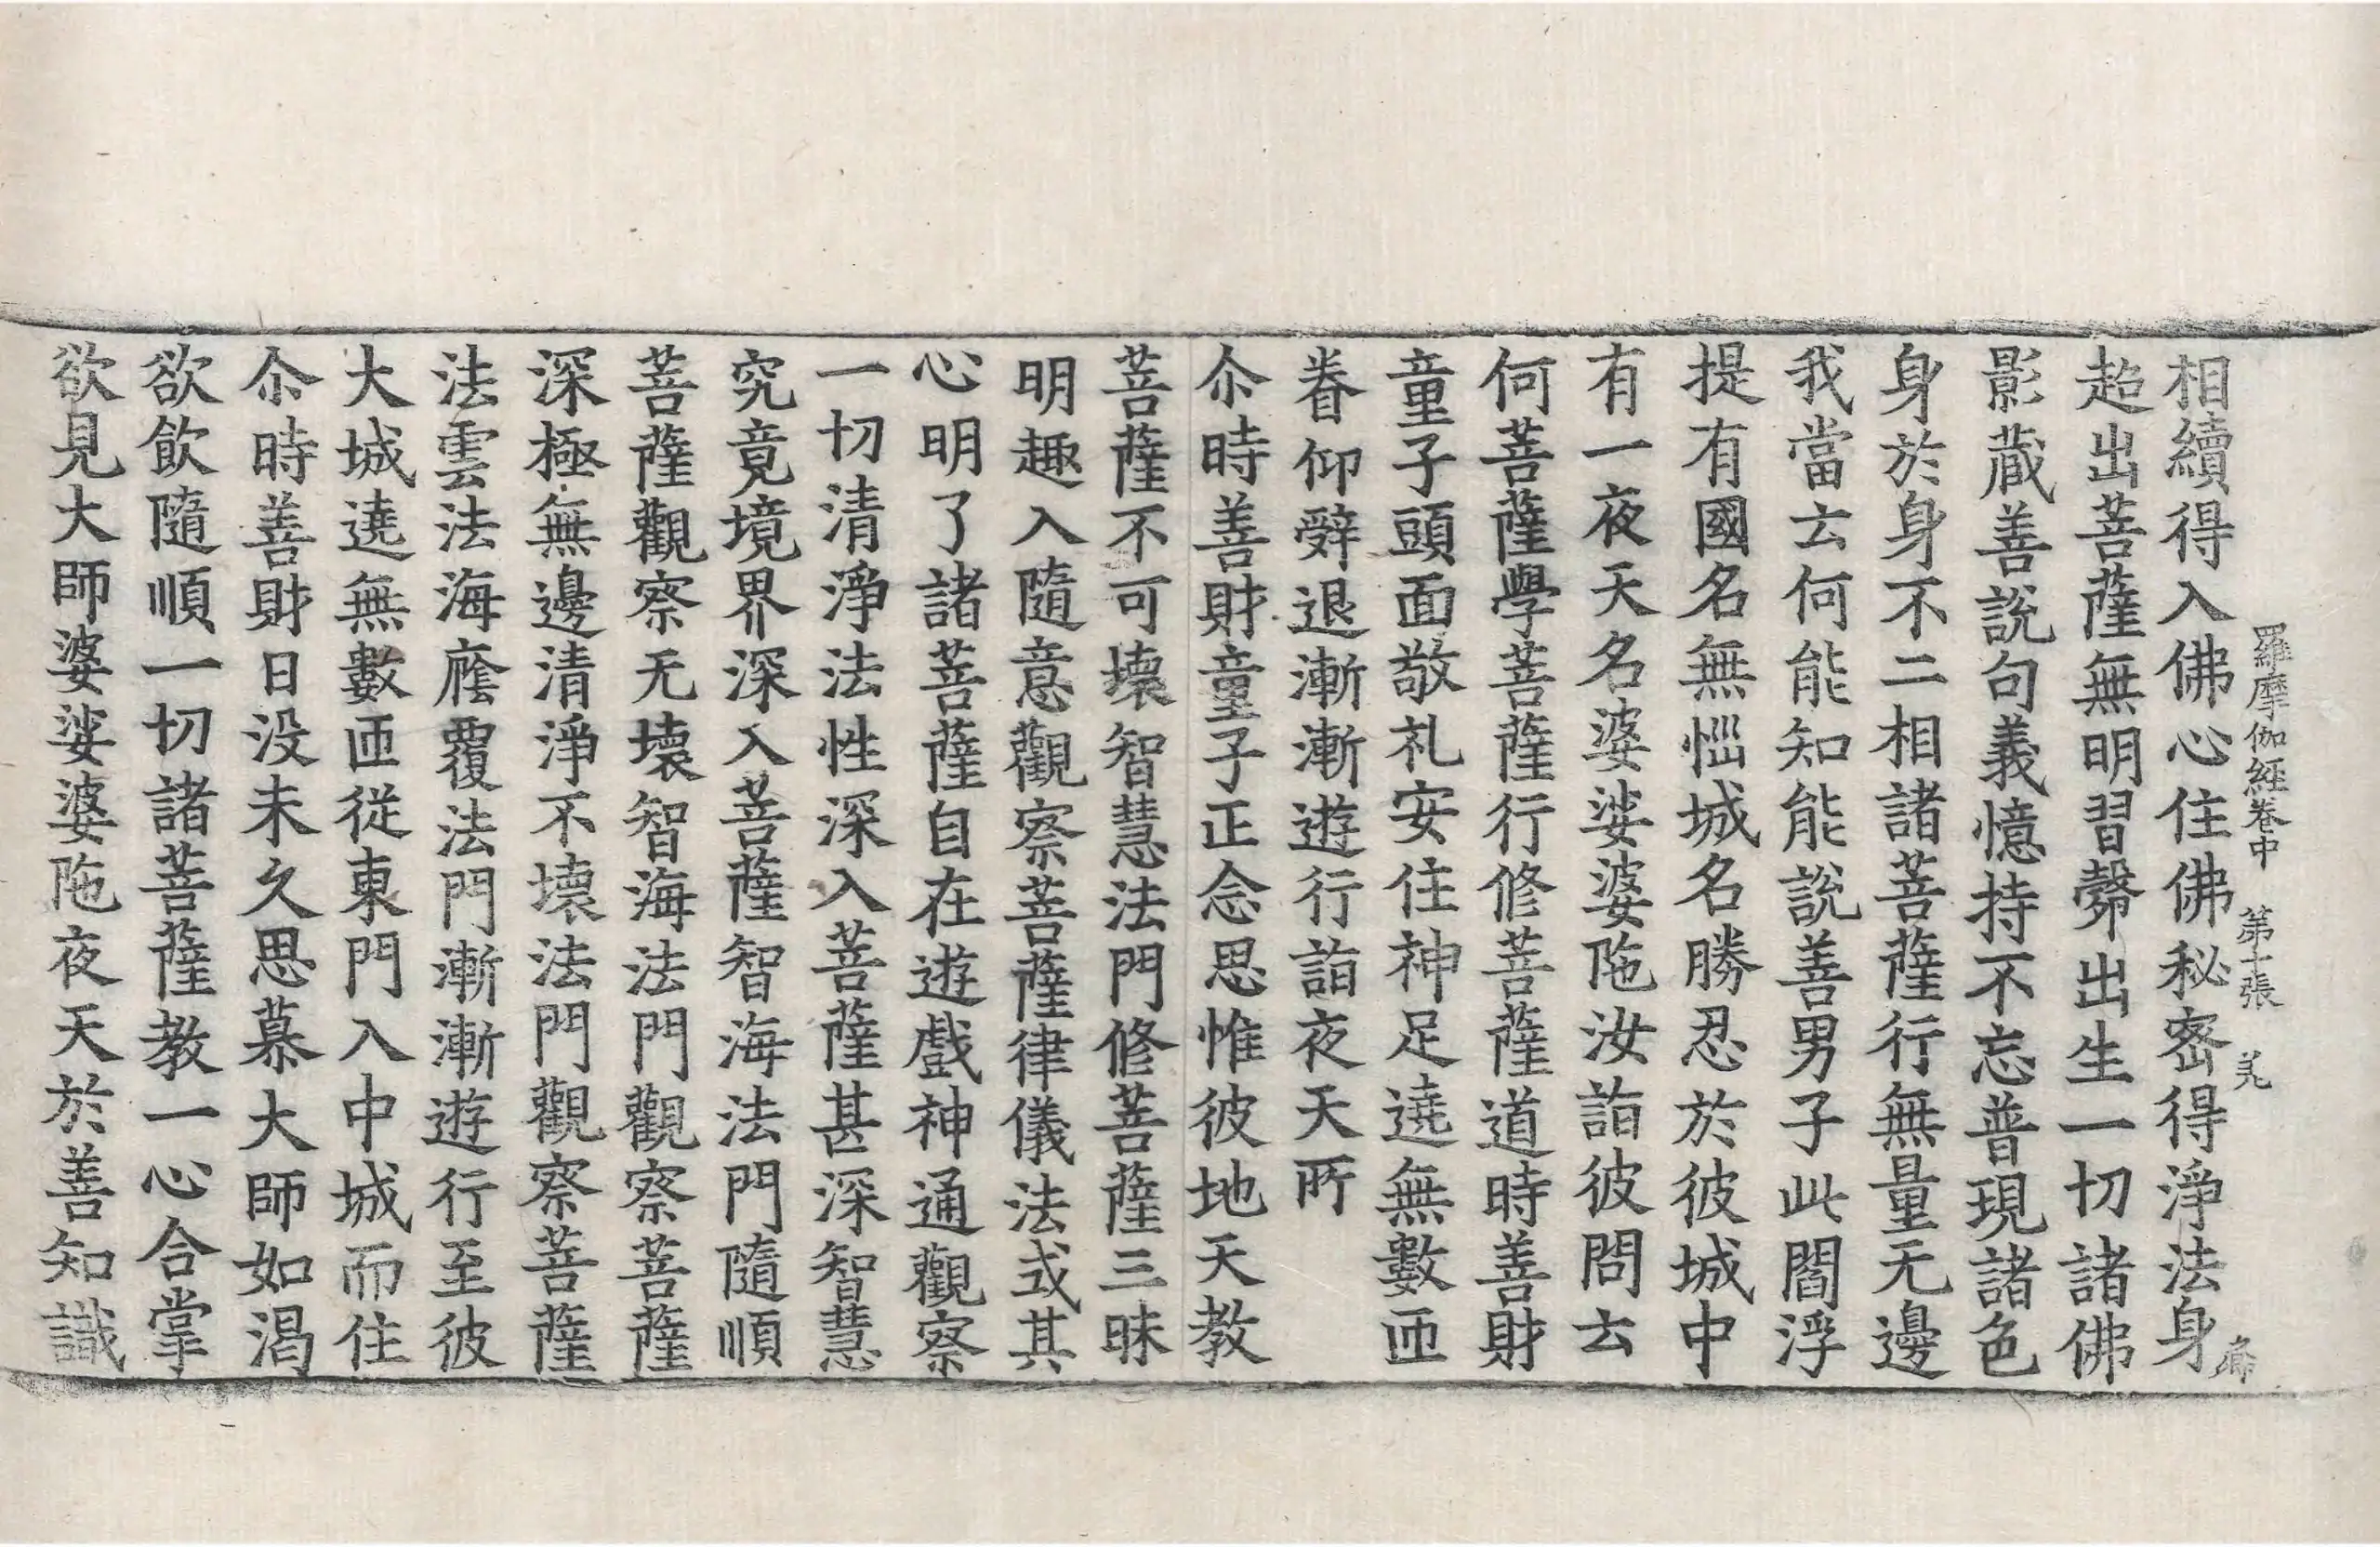 羅摩伽經卷中 第十張 羌
相續得入佛心住佛秘密得淨法身
超出菩薩無明習㲉出生一切諸佛
影蔵善說句義憶持不忘普現諸色
身於身不二相諸菩薩行無量无邊
我當云何能知能說善男子此閻浮
提有國名無惱城名勝忍於彼城中
有一夜天名婆娑婆陁汝詣彼問云
何菩薩學菩薩行修菩薩道時善財
童子頭面敬礼安住神足遶無數匝
眷仰辤退漸漸遊行詣夜天所
尒時善財童子正念思惟彼地天教
菩薩不可壞智慧法門修菩薩三昧
明趣入隨意觀察菩薩律儀法式其
心明了諸菩薩自在遊戲神通觀察
一切清淨法性深入菩薩甚深智慧
究竟境界深入菩薩智海法門隨順
菩薩觀察无壞智海法門觀察菩薩
深極無邊清淨不壞法門觀察菩薩
法雲法海䕃覆法門漸漸遊行至彼
大城遶無數匝從東門入中城而住
尒時善財日没未久思慕大師如渴
欲飲隨順一切諸菩薩教一心合掌
欲見大師婆娑婆陁夜天於善知識